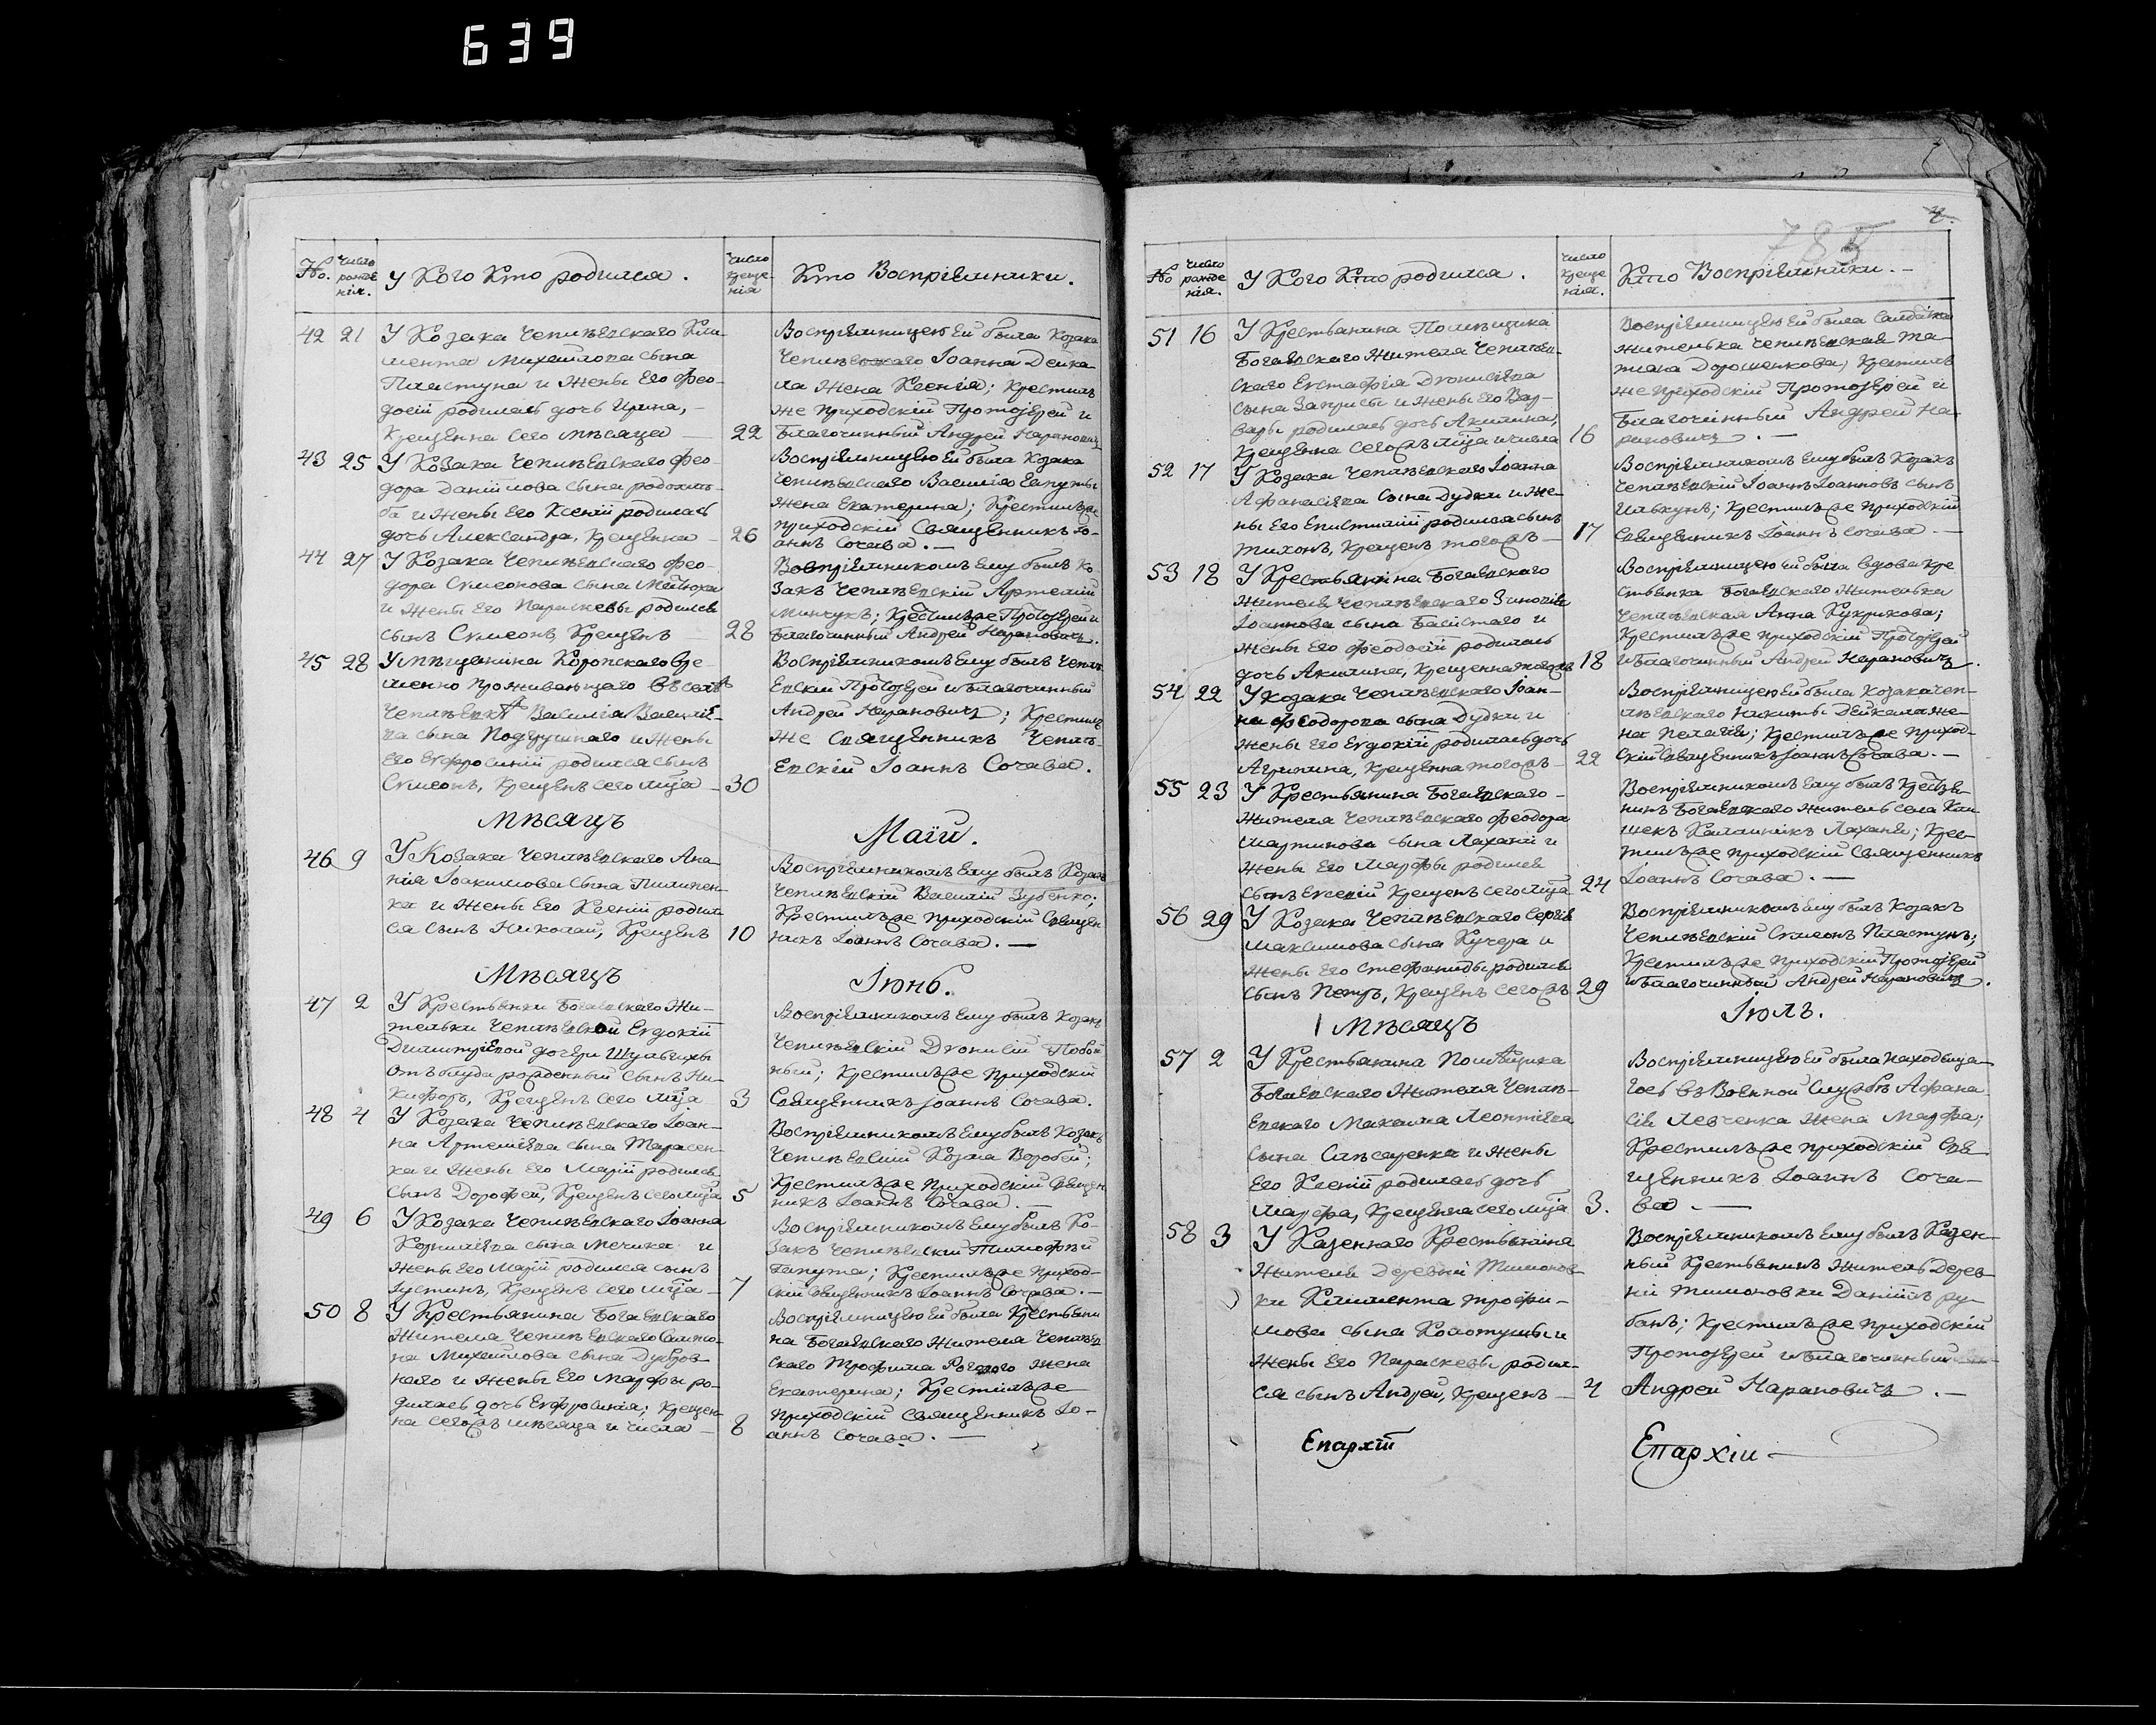 639
No.
Число
рожде
нія.
У Кого Кто родился.
Число
Креще-
нія
Кто Воспріемники.
42 21 У Козака Чеплѣевскаго Кли-
мента Михайлова сына
Пластуна и жены Его Фео-
досіи родилась дочь Ирина,-
Крещенна сего мѣсяца — 22
Воспріемницею Ей была Козака
Чеплѣевскаго Іоанна Дейка-
ла жена Ксенія; Крестилъ
же приходскій Протоіерей и
Благочинный Андрей Нарановичь
43 25 У Козака Чеплѣевскаго Фео-
дора Даніилова сына
и жены Его Ксеніи родилась
дочь Александра, Крещенна — 26
Воспріемницею Ей была Козака
Чеплѣевскаго Василія
жена Екатерина; Крестилъ же
приходскій Священникъ Іо-
аннъ Сочава. —
44 27 У Козака Чеплѣевскаго Фео-
дора Симеонова сына
и жены Его Параскевы родился
сынъ Симеонъ, Крещенъ — 28
Воспріемникомъ Ему былъ Ко-
закъ Чеплѣевскій Артемій
Минчукъ; Крестилъ же Протоіерей и
Благочинный Андрей Нарановичь.
45 28 У мѣщанина Коропскаго вре-
менно проживающаго въ селѣ
Чеплѣевкѣ Василія Василіе-
ва сына и жены
Его Евфросиніи родился сынъ
Симеонъ, Крещенъ сего мѣца — 30
Воспріемникомъ Ему былъ Чеплѣ-
евскій Протоіерей и Благочинный
Андрей Нарановичь; Крестилъ
же Священникъ Чеплѣ-
евскій Іоаннъ Сочава.
Мѣсяцъ Маій.
46 9 У Козака Чеплѣевскаго Ана-
нія Іоакимова сына Пилипен-
ка и жены Его Ксеніи родил-
ся сынъ Николай, Крещенъ 10
Воспріемникомъ Ему былъ Козакъ
Чеплѣевскій Василій Зубенко;
Крестилъ же приходскій Священ-
никъ Іоаннъ Сочава. —
Мѣсяцъ Іюнь.
47 2 У Крестьянки Богаевскаго Жи-
тельки Чеплѣевской Евдокіи
Димитріевой дочери Шульгихи
отъ блуда рожденный сынъ Ни-
кифоръ, Крещенъ сего мѣца 3
Воспріемникомъ Ему былъ Козакъ
Чеплѣевскій Діонисій
Крестилъ же приходскій
Священникъ Іоаннъ Сочава.
48 4 У Козака Чеплѣевскаго Іоан-
на Артеміева сына Тарасен-
ка и жены Его Маріи родился
сынъ Дорофей, Крещенъ сего мѣца 5
Воспріемникомъ Ему былъ Козакъ
Чеплѣевскій Козма Воробей;
Крестилъ же приходскій Священ-
никъ Іоаннъ Сочава. —
49 6 У Козака Чеплѣевскаго Іоанна
Корниліева сына Мечика и
жены Его Маріи родился сынъ
Іустинъ, Крещенъ сего мѣца — 7
Воспріемникомъ Ему былъ Ко-
закъ Чеплѣевскій Тимофѣй
Крестилъ же приход-
скій Священникъ Іоаннъ Сочава. —
50 8 У Крестьянина Богаевскаго
Жителя Чеплѣевскаго Симео-
на Михайлова сына Дубров-
наго и жены Его Марфы ро-
дилась дочь Евфросинія; Крещен-
на сегожъ мѣсяца и числа — 8
Воспріемницею Ей была Крестьяни-
на Богаевскаго Жителя Чеплѣев-
скаго Трофима жена
Екатерина; Крестилъ же
приходскій Священникъ Іо-
аннъ Сочава. —
785
No
Число
рожде
нія.
У Кого Кто родился.
Число
Креще
нія.
Кто Воспріемники. —
51 16 У Крестьянина Помѣщика
Богаевскаго Жителя Чеплѣев-
скаго Евстафія Діонисіева
сына и жены Его Вар-
вары родилась дочь Акилина,
Крещенна сегожъ мѣца и числа 16
Воспріемницею Ей была Салдатка
жителька Чеплѣевская Та-
тіана Дорошенкова, Крестилъ
же приходскій Протоіерей и
Благочинный Андрей На-
рановичь. —
52 17 У Козака Чеплѣевскаго Іоанна
Афанасіева сына Дудки и же-
ны Его Епистиміи родился сынъ
Тихонъ, Крещенъ тогожъ — 17
Воспріемникомъ Ему былъ Козакъ
Чеплѣевскій Іоаннъ Іоанновъ сынъ
Крестилъ же приходскій
Священникъ Іоаннъ Сочава —
53 18 У Крестьянина Богаевскаго
жителя Чеплѣевскаго Зиновія
Іоаннова сына Басистаго и
жены Его Феодосіи родилась
дочь Акилина, Крещенна тогожъ 18
Воспріемницею Ей была вдова Кре-
стьянка Богаевскаго Жителька
Чеплѣевская Анна Кукрикова;
Крестилъ же приходскій Протоіерей
и Благочинный Андрей Нарановичь.
54 22 У Козака Чеплѣевскаго Іоан-
на Феодорова сына Дудки и
жены Его Евдокіи родилась дочь
Агрипина, Крещенна тогожъ — 22
Воспріемницею Ей была Козака Чеп-
лѣевскаго Никиты Дейкала же-
на Пелагія; Крестилъ же приход-
скій Священникъ Іоаннъ Сочава. —
55 23 У Крестьянина Богаевскаго —
Жителя Чеплѣевскаго Феодора
Мартинова сына Лаханя и
жены Его Марфы родился
сынъ Евсевій Крещенъ сего мѣца 24
Воспріемникомъ Ему былъ Крестья-
нинъ Богаевскаго житель села
Лаханя; Крес-
тилъ же приходскій Священникъ
Іоаннъ Сочава. —
56 29 У Козака Чеплѣевскаго Сергія
Максимова сына Кучера и
жены Его Стефаниды родился
сынъ Петръ, Крещенъ сегожъ 29
Воспріемникомъ Ему былъ Козакъ
Чеплѣевскій Симеонъ Пластунъ;
Крестилъ же приходскій Протоіерей
и Благочинный Андрей Нарановичь.
Мѣсяцъ Іюль.
57 2 У Крестьянина Помѣщика
Богаевскаго Жителя Чеплѣ-
евскаго Максима Леонтіева
сына Слѣсаренка и жены
Его Ксеніи родилась дочь
Марфа, Крещенна сего мѣца 3.
Воспріемницею Ей была находяща-
гось въ Военной Службѣ Афана-
сія Левченка жена Марфа;
Крестилъ же приходскій Свя-
щенникъ Іоаннъ Соча-
ва. —
58 3 У Казеннаго Крестьянина
Жителя Деревни Тимонов-
ки Климента Трофи-
мова сына Колотуши и
жены Его Параскевы родил-
ся сынъ Андрей, Крещенъ — 4
Воспріемникомъ Ему былъ Казен-
ный Крестьянинъ Житель Дерев-
ни Тимоновки Даніилъ Ру-
банъ; Крестилъ же приходскій
Протоіерей и Благочинный
Андрей Нарановичь. —
Епархіи Епархіи